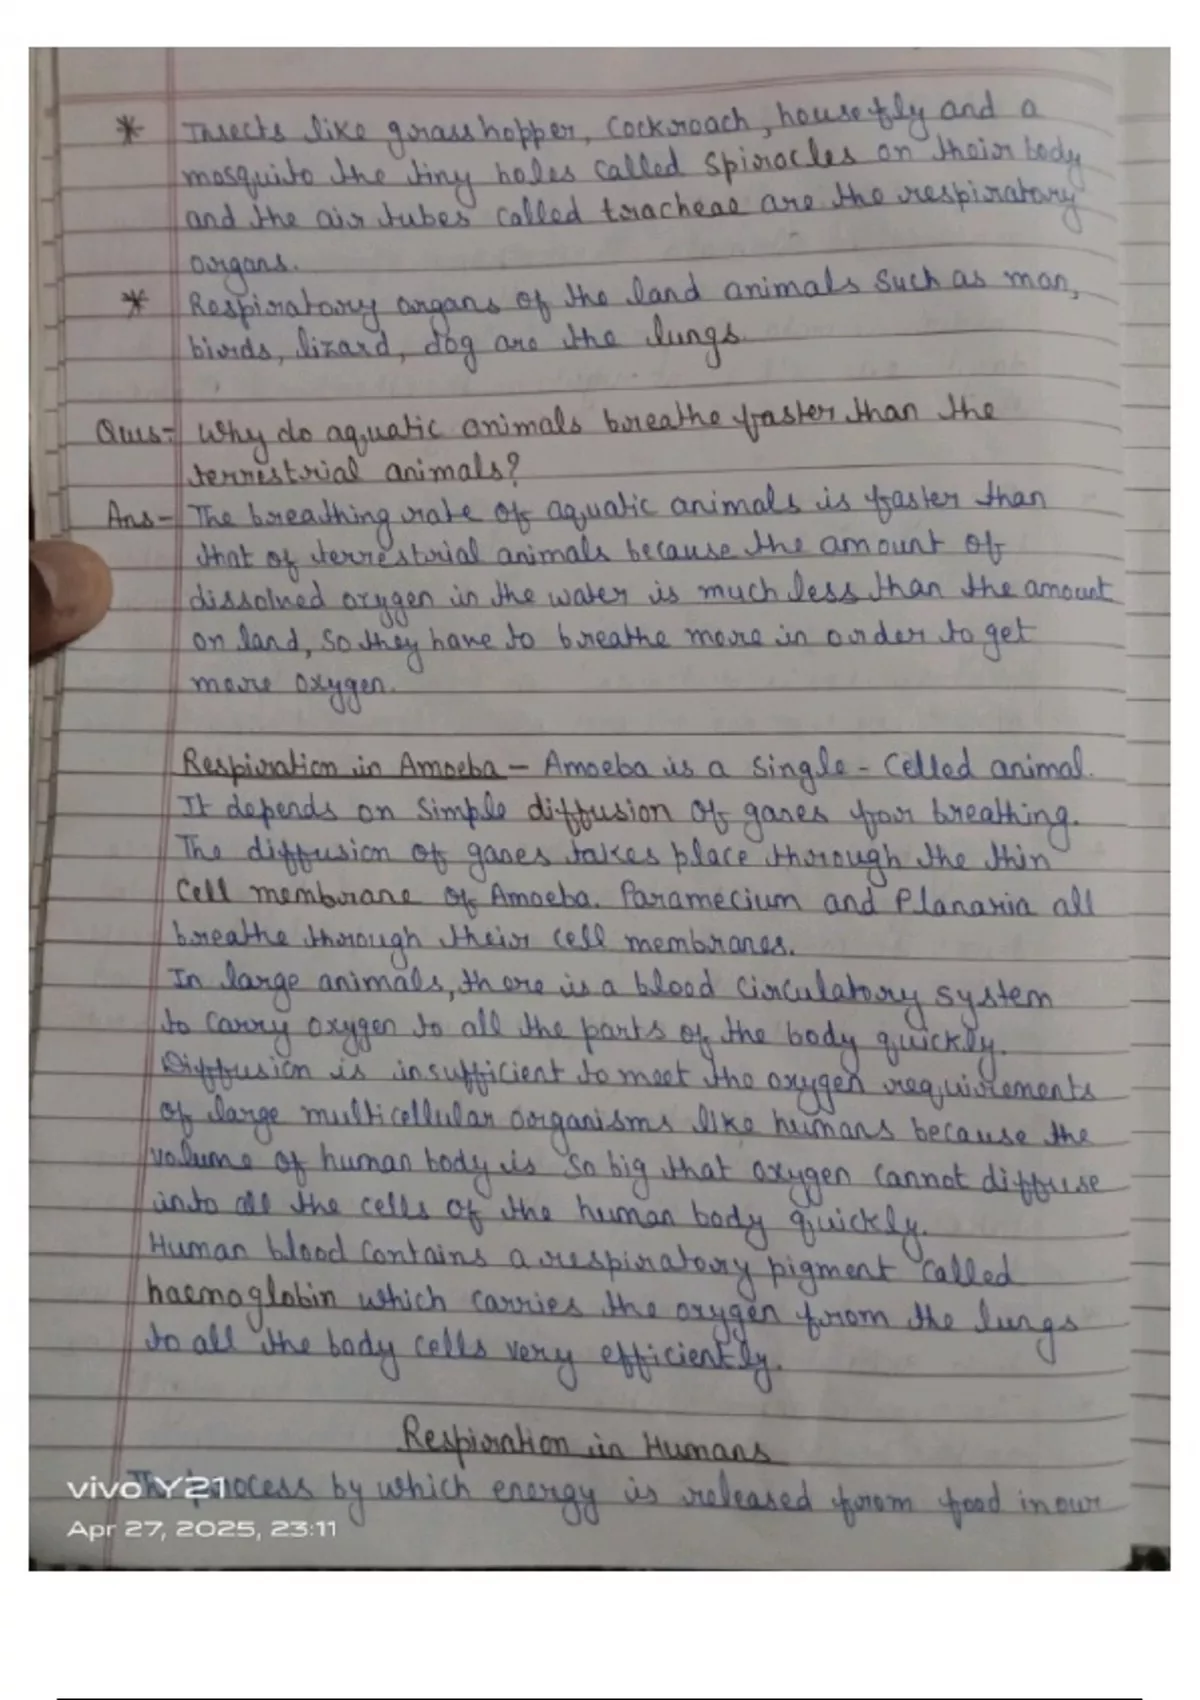 * Insects like grasshopper, Cockroach, housefly and a
mosquito the tiny holes called spiracles on their body
and the air tubes called tracheae are the respiratory
organs.
* Respiratory organs of the land animals such as man,
birds, lizard, dog are the lungs.
Ques- Why do aquatic animals breathe faster than the
terrestrial animals?
Ans- The breathing rate of aquatic animals is faster than
that of terrestrial animals because the amount of
dissolved oxygen in the water is much less than the amount
on land, so they have to breathe more in order to get
more oxygen.
Respiration in Amoeba - Amoeba is a single-Celled animal.
It depends on simple diffusion of gases for breathing.
The diffusion of gases takes place through the thin
Cell membrane of Amoeba. Paramecium and Planaria all
breathe through their cell membranes.
In large animals, there is a blood circulatory system
to carry oxygen to all the parts of the body quickly.
Diffusion is insufficient to meet the oxygen requirements
of large multicellular organisms like humans because the
volume of human body is so big that oxygen cannot diffuse
into all the cells of the human body quickly.
Human blood contains a respiratory pigment called
haemoglobin which carries the oxygen from the lungs
to all the body cells very efficiently.
Respiration in Humans
The process by which energy is released from food in our
vivo Y21
Apr 27, 2025, 23:11